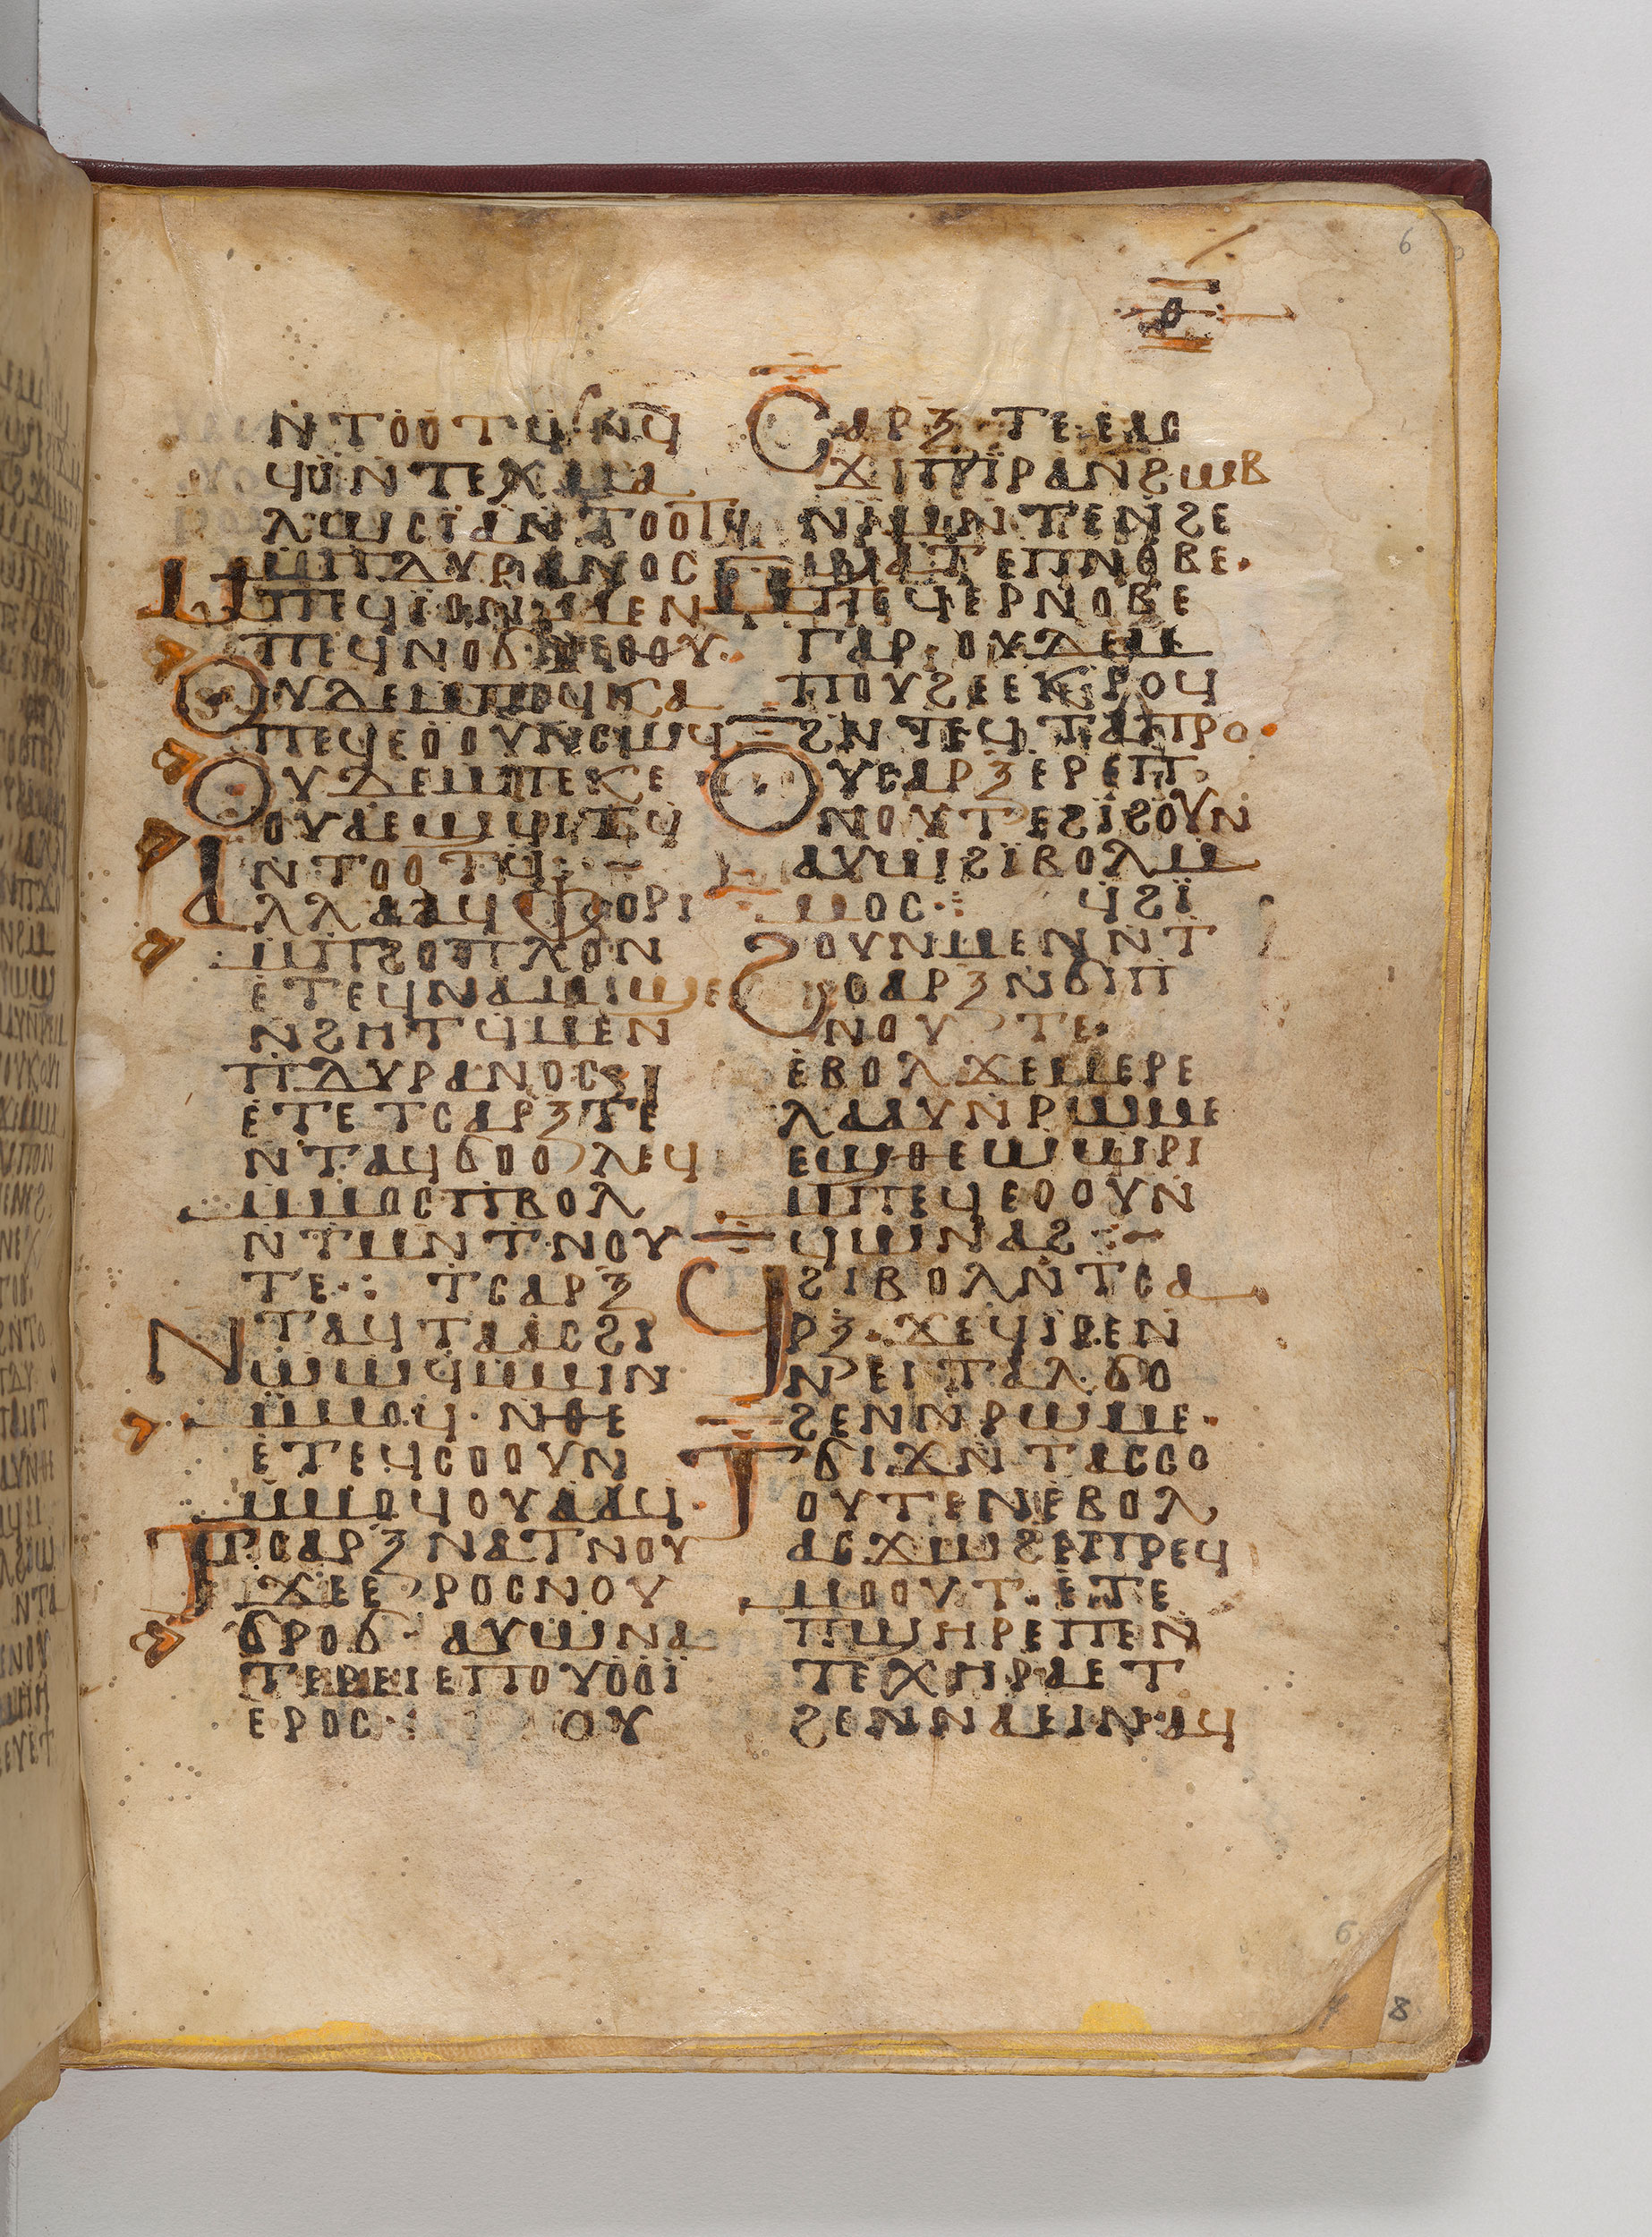 ⲛⲧⲟⲟⲧϥ ⲛϥ
ϥⲓ ⲛⲧⲉⲭⲙⲁ
ⲗⲱⲥⲓⲁ ⲛⲧⲟⲟⲧϥ
ⲙⲡⲇⲩⲣⲁⲛⲟⲥ
ⲡⲉϥⲛⲟϭ ⲛⲉⲟⲟⲩ·
Ⲟⲩⲇⲉ ⲙⲡⲟϥⲕⲁ
ⲡⲉϥⲉⲟⲟⲩ ⲛⲥⲱϥ
Ⲟⲩⲇⲉ ⲙⲡⲉⲕⲉ
ⲟⲩⲁ ⲉϣϥⲓⲧϥ
ⲛⲧⲟⲟⲧϥ :~
Ⲁⲗⲗⲁ ⲁϥⲫⲟⲣⲓ
ⲙⲡϩⲟⲡⲗⲟⲛ
ⲉⲧⲉϥⲛⲁⲙⲓϣⲉ
ⲛϩⲏⲧϥ ⲙⲉⲛ
ⲡⲇⲩⲣⲁⲛⲟⲥ
ⲉⲧⲉ ⲧⲥⲁⲣⲝ ⲧⲉ
ⲛⲧⲁϥϭⲟⲟⲗⲉϥ
ⲙⲙⲟⲥ ⲡⲃⲟⲗ
ⲛⲧⲙⲛⲧⲛⲟⲩ
ⲧⲉ ·: ⲧⲥⲁⲣⲝ
Ⲛⲧⲁϥⲧⲁⲁⲥ ϩⲓ
ⲱⲱϥ ⲙⲙⲓⲛ
ⲙⲙⲟϥ · ⲛⲑⲉ
ⲉⲧⲉϥⲥⲟⲟⲩⲛ
ⲙⲙⲟϥ ⲟⲩⲁⲁϥ·
Ⲧⲥⲁⲣⲝ ⲛⲁⲧⲛⲟⲩ
ϫⲉ ⲉⲣⲟⲥ ⲛⲟⲩ
ϭⲣⲟϭ · ⲁⲩⲱ ⲛⲁ
ⲉⲣⲟⲥ : ⲟⲩ
Ⲥⲁⲣⲝ ⲧⲉ ⲉⲁⲥ
ϫⲓ ⲡⲓⲣⲁ ⲛϩⲱⲃ
ⲛⲓⲙ ⲛⲧⲉⲛϩⲉ
ϣⲁⲧⲉ ⲡⲛⲟⲃⲉ·
Ⲙⲡⲉϥⲉⲣⲛⲟⲃⲉ
ⲅⲁⲣ ⲟⲩⲇⲉ ⲙ
ⲡⲟⲩϩⲉ ⲉⲕⲣⲟϥ
ϩⲛ ⲧⲉϥⲧⲁⲡⲣⲟ·
Ⲟⲩⲥⲁⲣⲝ ⲉⲣⲉⲡ
ⲛⲟⲩⲧⲉ ϩⲓϩⲟⲩⲛ
ⲁⲩⲱ ϩⲓⲃⲟⲗ ⲙ
ⲙⲟⲥ ⁖ ϥϩⲓ
Ϩⲟⲩⲛ ⲙⲉⲛ ⲛⲧ
ⲥⲁⲣⲝ ⲛϭⲓ ⲡ
ⲛⲟⲩⲧⲉ·
ⲉⲃⲟⲗ ϫⲉ ⲙⲉⲣⲉ
ⲗⲁⲁⲩ ⲛⲣⲱⲙⲉ
ⲉϣⲑⲉⲱⲣⲓ
ⲙⲡⲉϥⲉⲟⲟⲩ ⲛ
ϥⲱⲛⲁϩ :~
Ϥϩⲓⲃⲟⲗ ⲛⲧⲥⲁ
ⲣⲝ · ϫⲉ ϥⲓⲣⲉ ⲛ
ⲛⲣⲉⲓⲧⲁⲗϭⲟ
ϩⲉⲛ ⲛⲣⲱⲙⲉ·
Ⲧϭⲓϫ ⲛⲧⲁⲥⲥⲟ
ⲟⲩⲧⲉⲛ ⲉⲃⲟⲗ
ⲁⲥϫⲱϩ ⲉⲡⲣⲉϥ
ⲙⲟⲟⲩⲧ · ⲉⲧⲉ
ⲡϣⲏⲣⲉ ⲡⲉ ⲛ
ⲧⲉⲭⲏⲣⲁ ⲉⲧ
ϩⲉⲛ ⲛⲁⲉⲓⲛ ⲁϥ